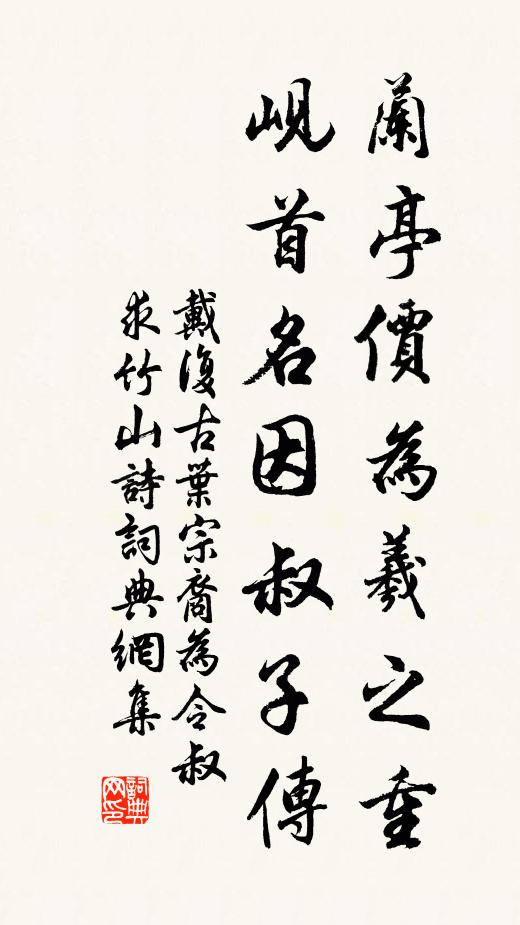 蘭亭價為羲之重
峴首名因叔子傳
戴復古葉宗裔為令叔
求竹山詩詞典網集
詞典
网印